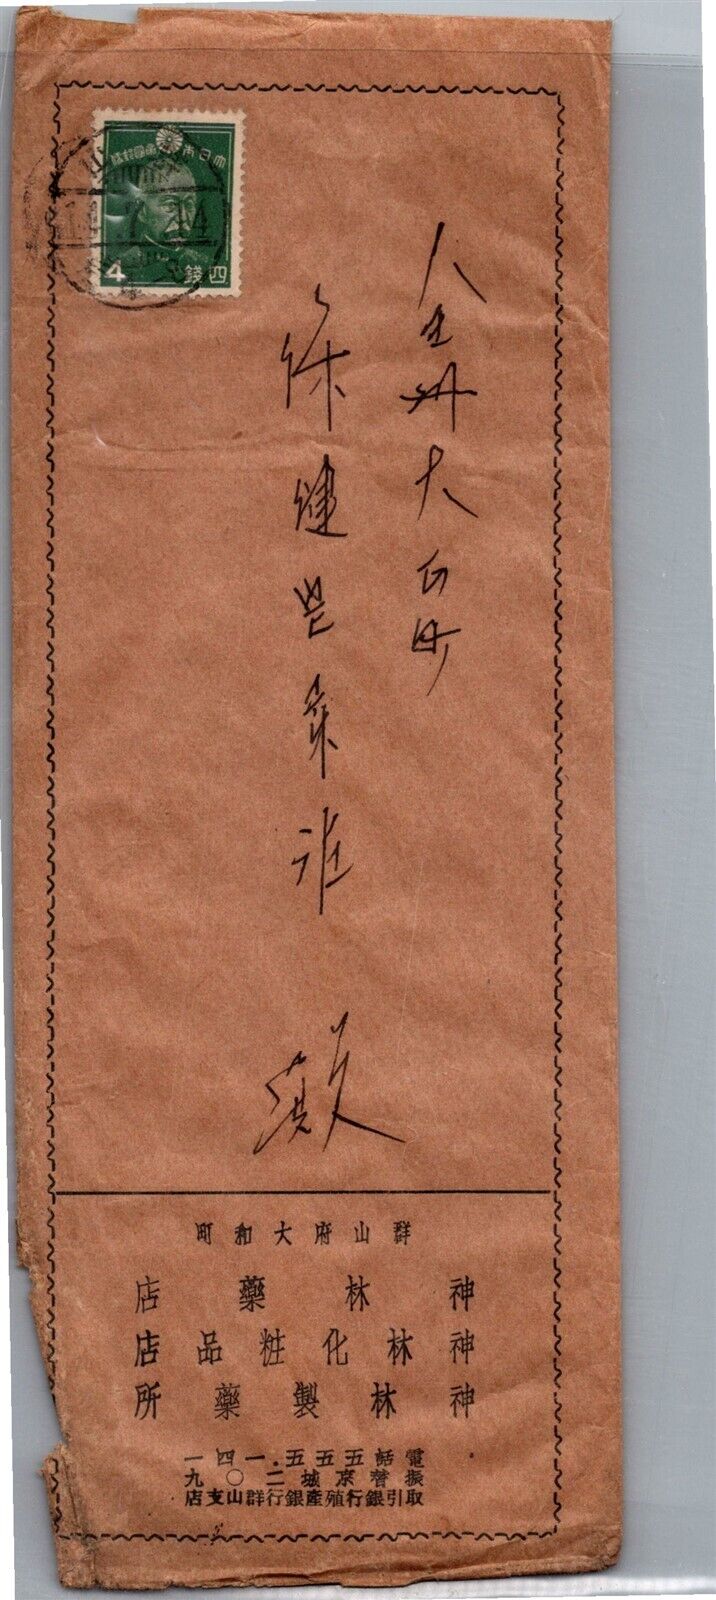 大日本帝國郵便
4 四錢
山
14.7.14
全州大正町
徐健
殿
群山府大和町
神林藥店
神林化粧品店
神林製藥所
電話五五五.一四一
振替京城二〇九
取引銀行殖產銀行群山支店